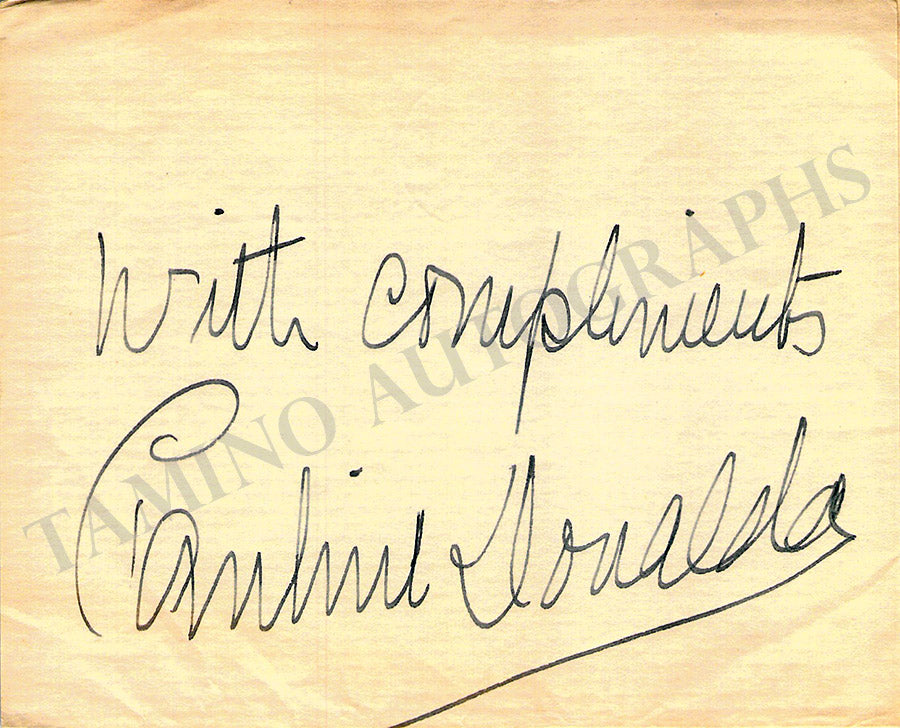 With compliments
Pauline Donalda
TAMINO AUTOGRAPHS